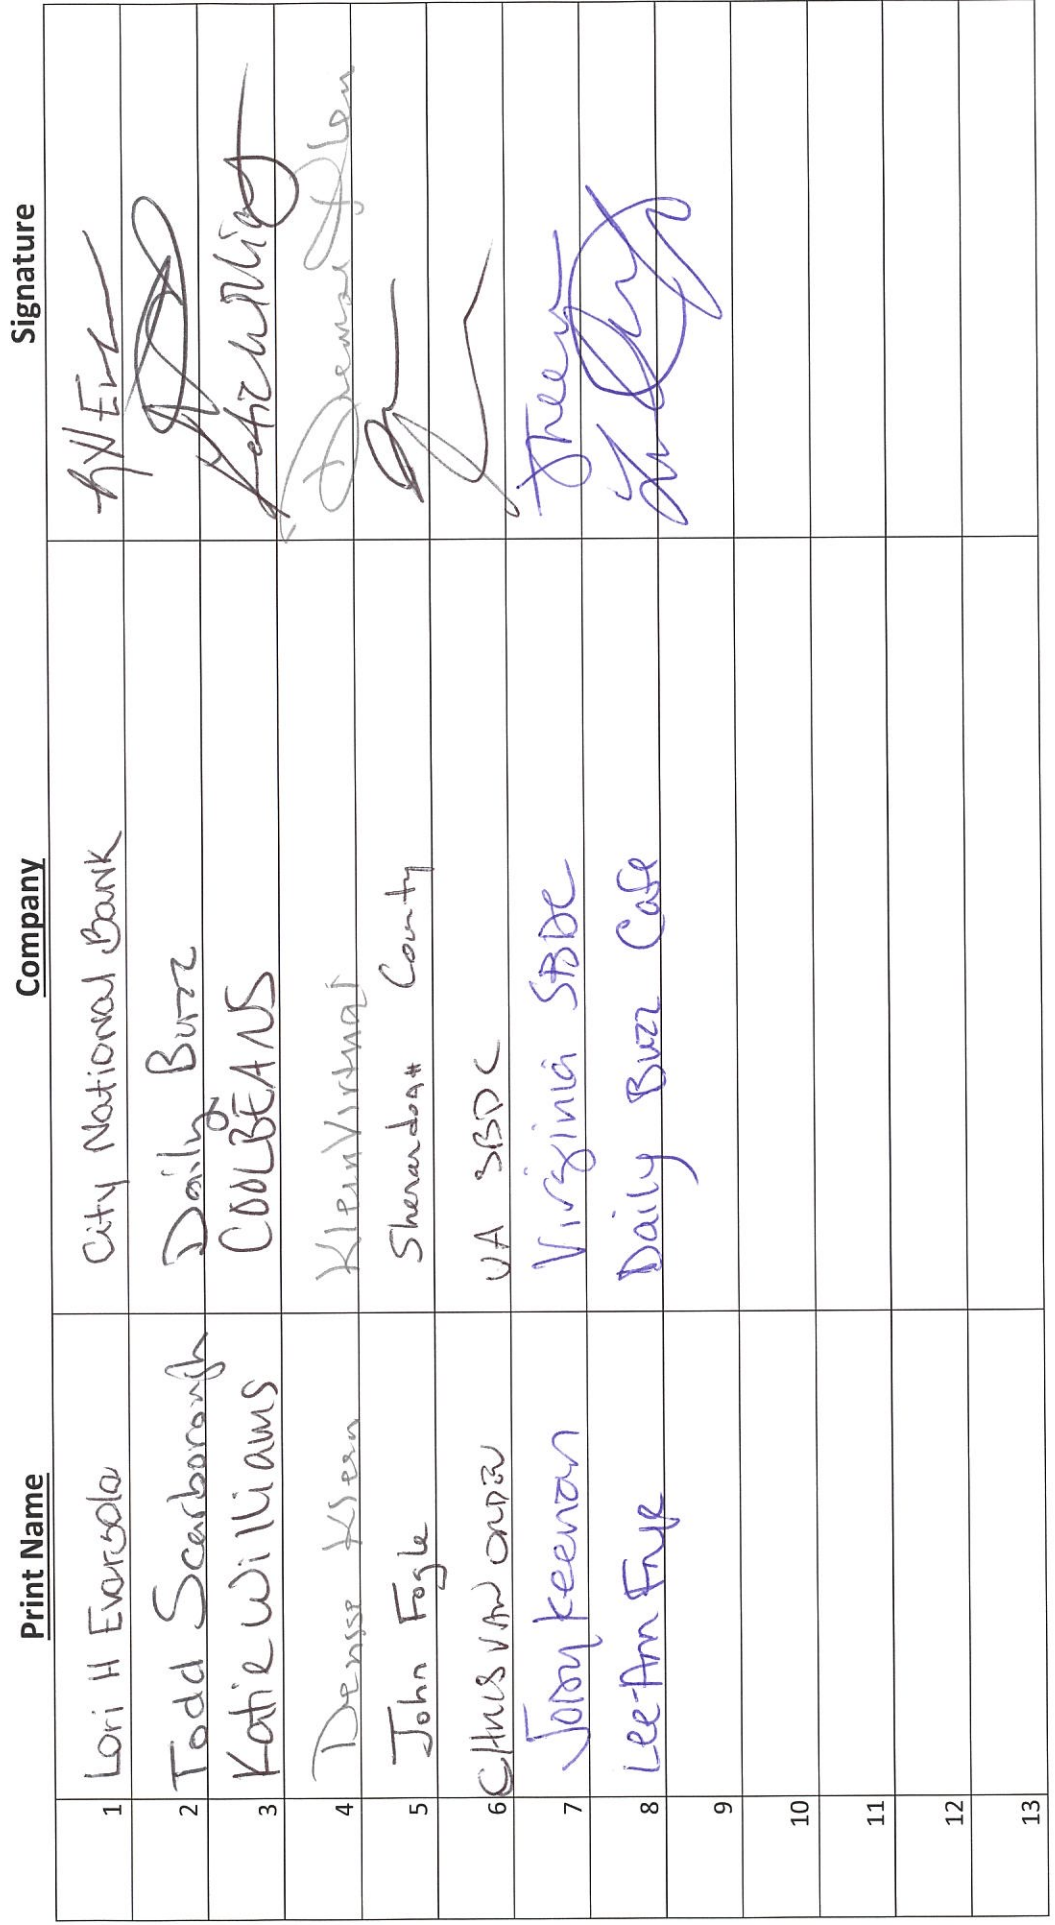 Print Name Company Signature
1 Lori H Eversole City National Bank
2 Todd Scarborough Daily Buzz
3 Katie Williams COOLBEANS
4 Denise Klein KleinVirtual
5 John Fogle Shenandoah County
6 CHRIS VAN ORDEN VA SBDC
7 Jody Keenan Virginia SBDC
8 LeeAnn Frye Daily Buzz Cafe
9
10
11
12
13